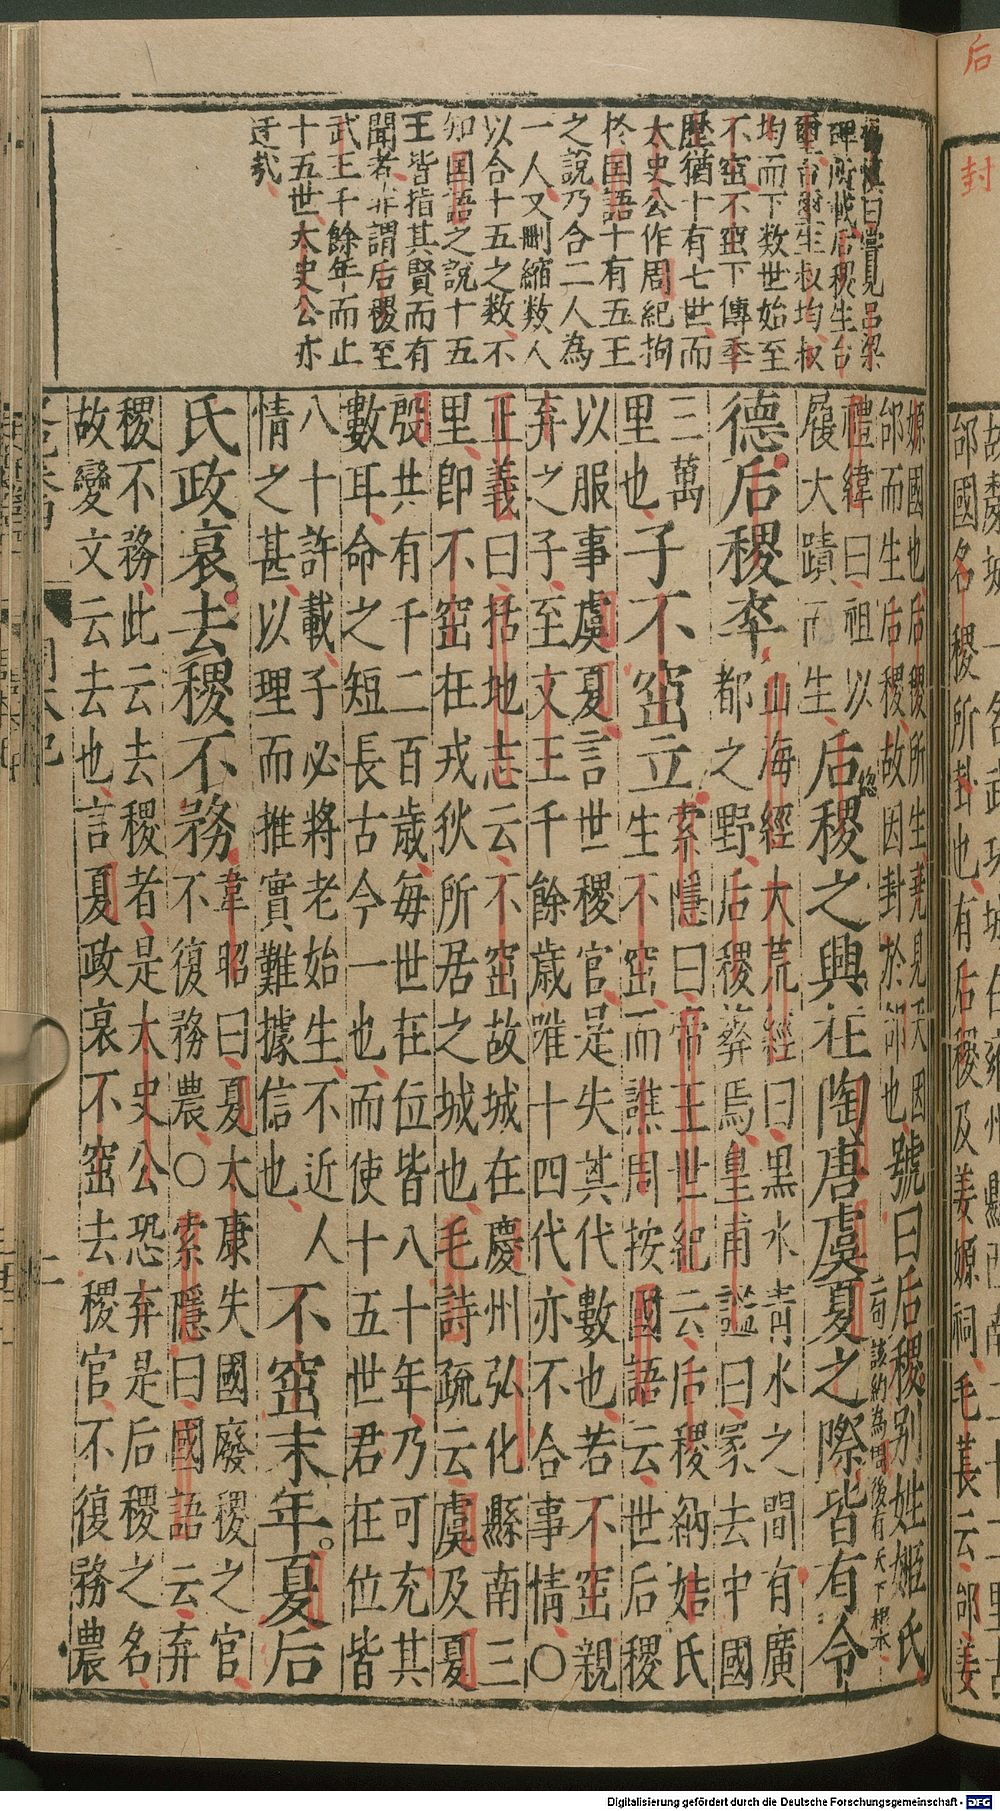 楊慎曰嘗見呂梁
碑所載后稷生台
璽台璽生叔均叔
均而下数世始至
不窋不窋下傳季
歷猶十有七世而
太史公作周紀拘
於国語十有五王
之說乃合二人為
一人又刪縮数人
以合十五之数不
知国語之說十五
王皆指其賢而有
聞者非謂后稷至
武王千餘年而止
十五世太史公亦
迂㢤
嫄國也后稷所生堯見天因
邰而生后稷故因封於邰也
號曰后稷别姓姬氏
禮緯曰祖以
履大蹟而生
后稷之興在陶唐虞夏之際皆有令
德后稷卒
山海經大荒經曰黑水青水之間有廣
都之野后稷葬焉皇甫謐曰冢去中國
三萬
里也
子不窋立
索隱曰帝王世紀云后稷納姞氏
生不窋而譙周按國語云世后稷
以服事虞夏言世稷官是失其代數也若不窋親
弃之子至文王千餘歲唯十四代亦不合事情○
正義曰括地志云不窋故城在慶州弘化縣南三
里即不窋在戎狄所居之城也毛詩疏云虞及夏
殷共有千二百歲每世在位皆八十年乃可充其
數耳命之短長古今一也而使十五世君在位皆
八十許載子必將老始生不近人
情之甚以理而推實難據信也
不窋末年夏后
氏政衰去稷不務
韋昭曰夏太康失國廢稷之官
不復務農○索隱曰國語云弃
稷不務此云去稷者是太史公恐弃是后稷之名
故變文云去也言夏政衰不窋去稷官不復務農
后
封
邰國名稷所封也有后稷及姜嫄祠毛萇云邰姜
Digitalisierung gefördert durch die Deutsche Forschungsgemeinschaft - DFG